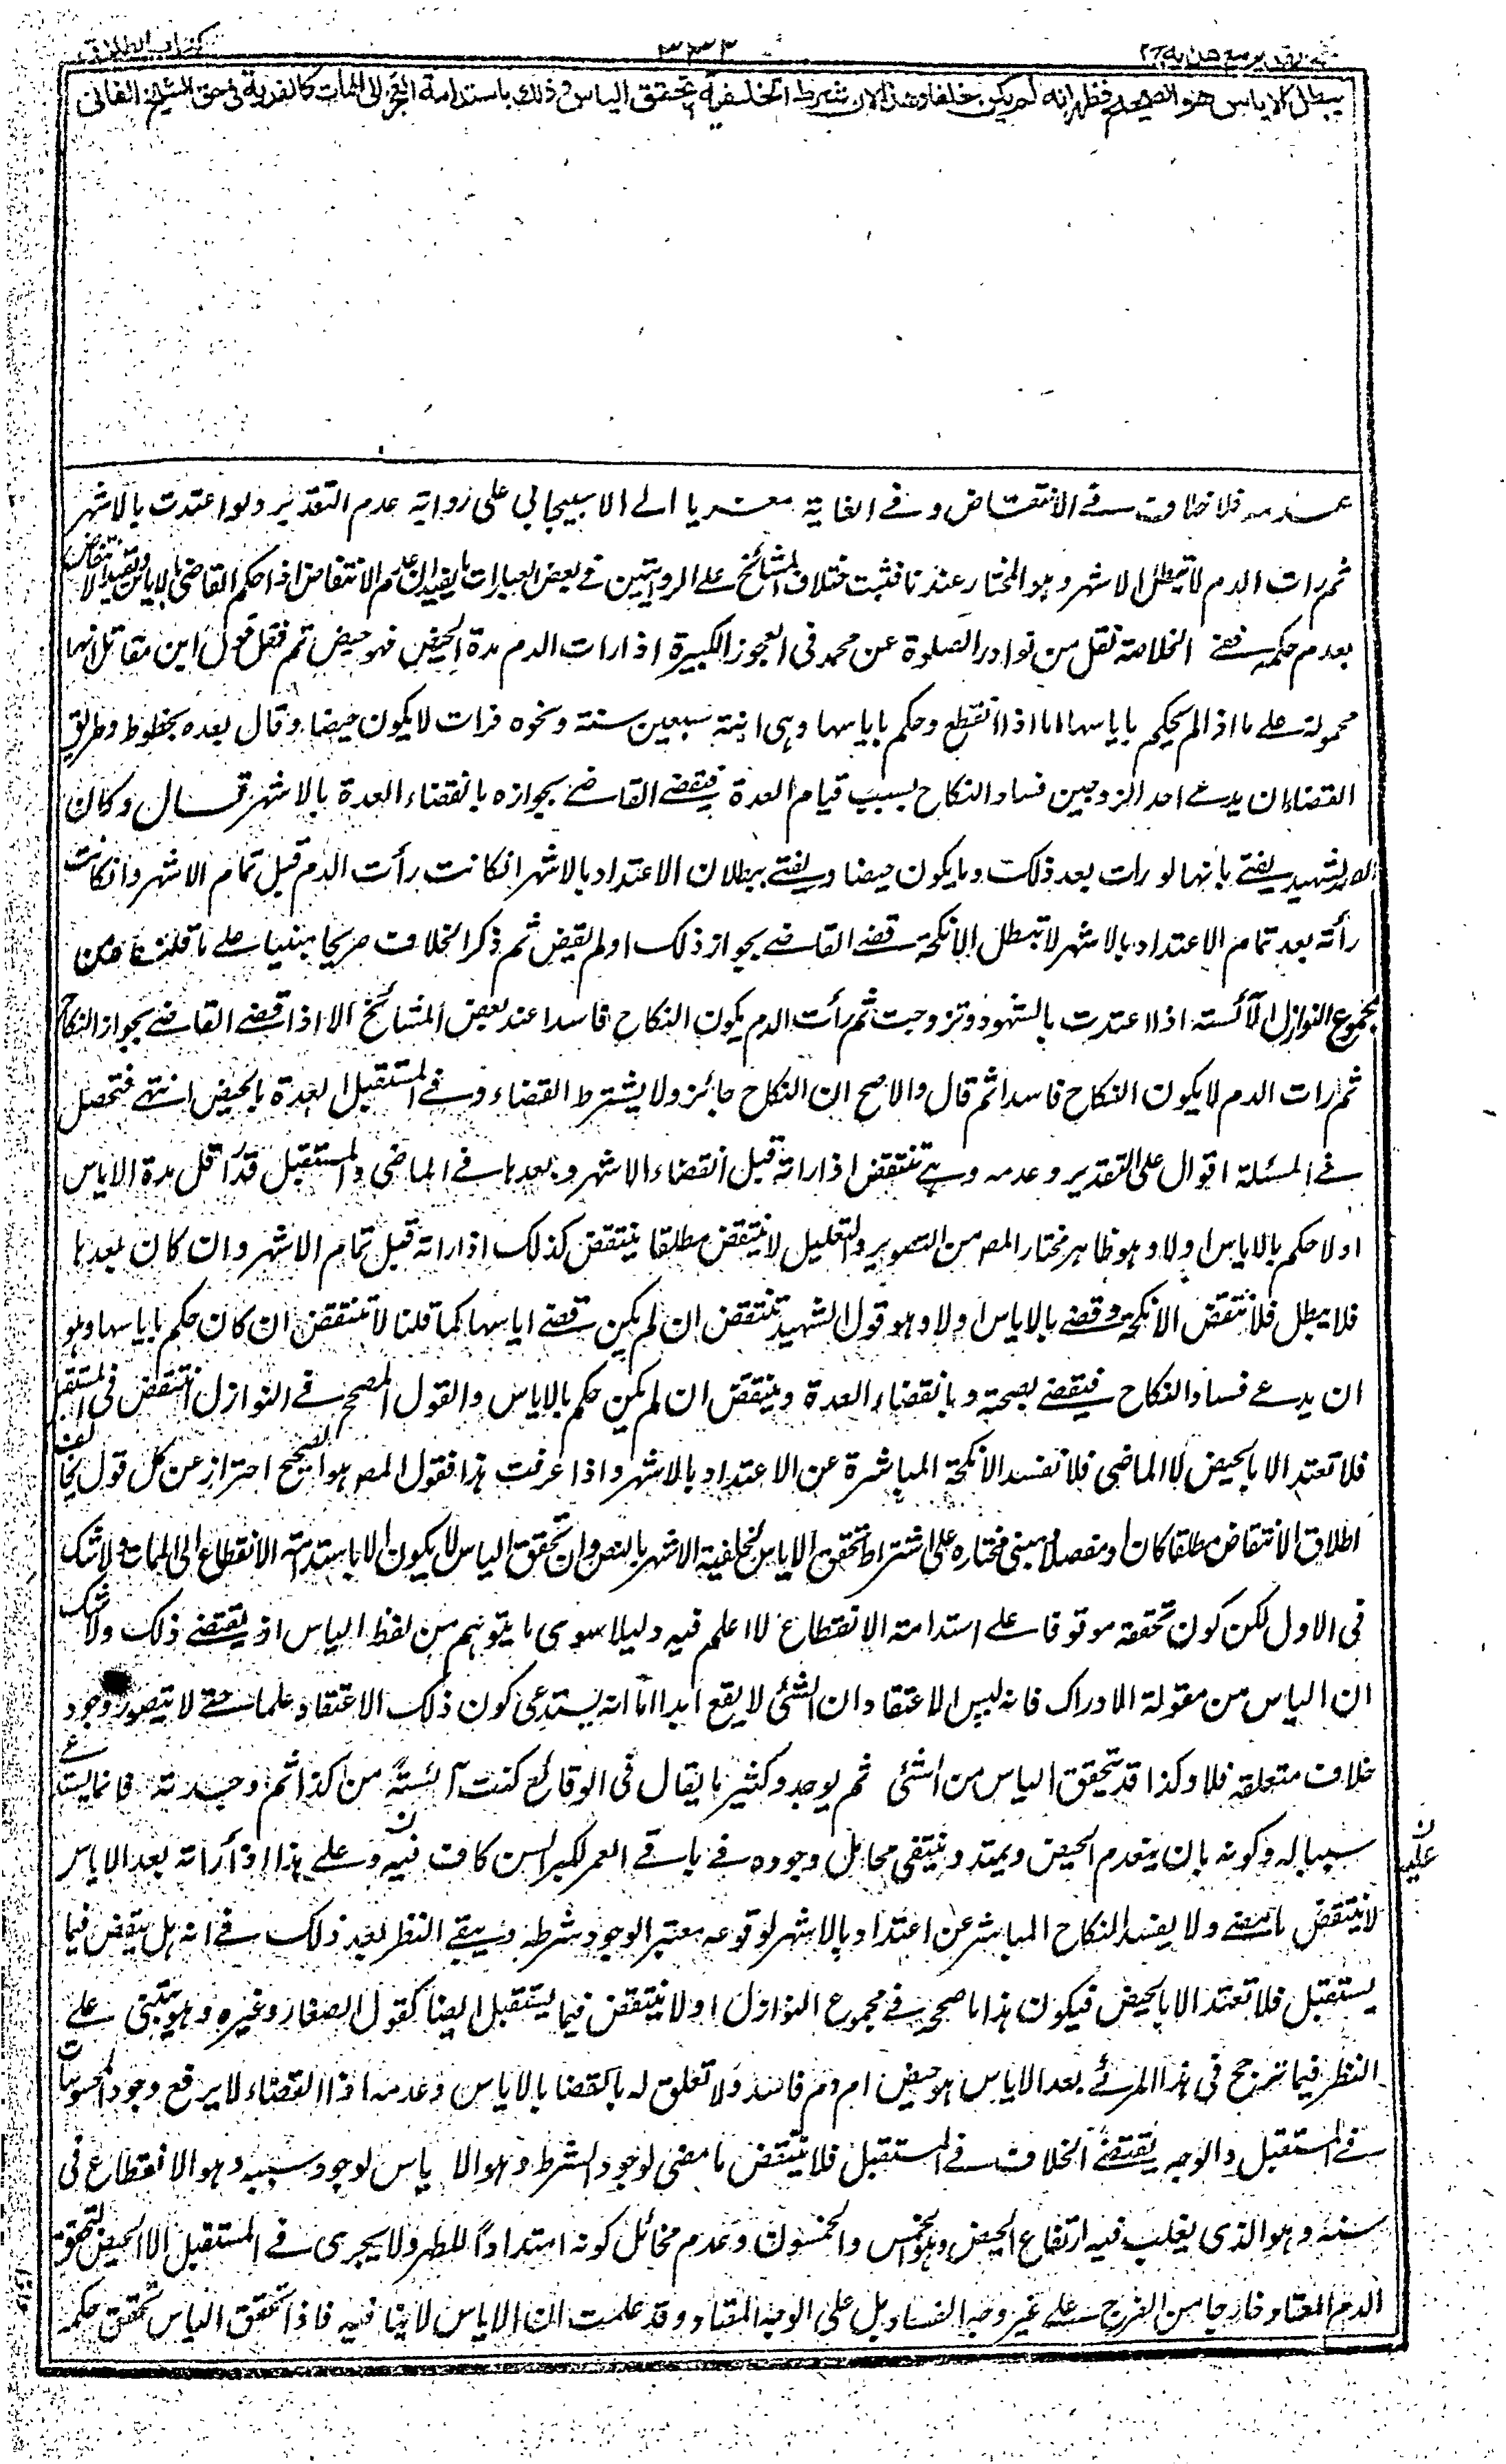 فتح القدير مع هدايه ج٢ ٣٣٢ كتاب الطلاق
يبطل الاياس هو الصحيح فظهر انه لم يكن خلفا وهذا لان شرط الخلفية تحقق الياس وذلك باستدامة العجز الى الممات كالفدية في حق الشيخ الفانى
عنده فلا خلاف فى الانتقاض وفى الغاية معزيا الى الاسبيجابى على رواية عدم التقدير ولو اعتدت بالاشهر
ثم رات الدم لا تبطل الاشهر وهو المختار عندنا فثبت اختلاف المشائخ على الروايتين فى بعض العبارات ما يفيد ان عدم الانتقاض اذا حكم القاضى بالاياس وتقييد الانتقاض
بعدم حكمه ففى الخلاصة نقل من نوادر الصلوة عن محمد فى العجوز الكبيرة اذا رات الدم مدة الحيض فهو حيض ثم نقل قول ابن مقاتل انها
محمولة على ما اذا لم يحكم باياسها اما اذا انقطع وحكم باياسها وهى ابنة سبعين سنة ونحوه فرات لا يكون حيضا وقال بعده بخطوط وطريق
القضاء ان يدعى احد الزوجين فساد النكاح بسبب قيام العدة فيقضى القاضى بجوازه بانقضاء العدة بالاشهر قال وكان
الصدر الشهيد يفتى بانها لو رات بعد ذلك دما يكون حيضا ويفتى ببطلان الاعتداد بالاشهر ان كانت رأت الدم قبل تمام الاشهر وان كانت
رأته بعد تمام الاعتداد بالاشهر لا تبطل الانكحة قضى القاضى بجواز ذلك او لم يقض ثم ذكر الخلاف صريحا مبنيا على ما قلنا عن
مجموع النوازل الآئسة اذا اعتدت بالشهود وتزوجت ثم رأت الدم يكون النكاح فاسدا عند بعض المشائخ الا اذا قضى القاضى بجواز النكاح
ثم رات الدم لا يكون النكاح فاسدا ثم قال والاصح ان النكاح جائز ولا يشترط القضاء وفى المستقبل العدة بالحيض انتهى فتحصل
فى المسئلة اقوال على التقدير وعدمه وهى تنتقض اذا راته قبل انقضاء الاشهر وبعدها فى الماضى والمستقبل قدر اقل مدة الاياس
اولا حكم بالاياس اولا وهو ظاهر مختار المص من التصوير والتعليل لا ينتقض مطلقا ينتقض كذلك اذا راته قبل تمام الاشهر وان كان بعدها
فلا يبطل فلا تنتقض الانكحة وقضى بالاياس اولا وهو قول الشهيد تنتقض ان لم يكن قضى اياسها كما قلنا لا تنتقض ان كان حكم باياسها وهو
ان يدعى فساد النكاح فيقضى بصحته وبانقضاء العدة وينتقض ان لم يكن حكم بالاياس والقول المصحح فى النوازل انتقض فى المستقبل
فلا تعتد الا بالحيض لا الماضى فلا تفسد الانكحة المباشرة عن الاعتداد بالاشهر واذا عرفت هذا فقول المص هو الصحيح احتراز عن كل قول يخالف
اطلاق الانتقاض مطلقا كان او مفصلا ومبنى مختاره على اشتراط تحقق الاياس لخلفية الاشهر بالنص وان تحقق الياس لا يكون الا باستدامة الانقطاع الى الممات ولا شك
فى الاول لكن كون تحققه موقوفا على استدامة الانقطاع لا اعلم فيه دليلا سوى ما يتوهم من لفظ الياس اذ يقتضى ذلك ولا شك
ان الياس من مقولة الادراك فانه ليس الا اعتقاد ان الشئ لا يقع ابدا اما انه يستدعى كون ذلك الاعتقاد علما حتى لا يتصور وجود
خلاف متعلقه فلا وكذا قد يتحقق الياس من الشئ ثم يوجد وكثير ما يقال فى الوقائع كنت آئسة من كذا ثم وجدته فانما يستدعى
سببا له وكونه بان يتقدم الحيض ويمتد وينتفى مخايل وجوده فى باقى العمر لكبر السن كاف فيه وعلى هذا اذا رأته بعد الاياس
لا ينتقض ما مضى ولا يفسد النكاح المباشر عن اعتداد بالاشهر لوقوعه معتبرا لوجود شرطه ويبقى النظر بعد ذلك فى انه هل ينتقض فيما
يستقبل فلا تعتد الا بالحيض فيكون هذا ما صححه فى مجموع النوازل او لا ينتقض فيما يستقبل ايضا كقول الصفار وغيره وهو يبتنى على
النظر فيما ترجح فى هذا المرئى بعد الاياس اهو حيض ام دم فاسد ولا تعلق له بالقضا بالاياس وعدمه اذا القضاء لا يرفع وجود المحسوسات
فى المستقبل والوجه يقتضى الخلاف فى المستقبل فلا ينتقض ما مضى لوجود الشرط وهو الاياس لوجود سببه وهو الانقطاع فى
سنه وهو الذى يغلب فيه ارتفاع الحيض وهو الخمس والخمسون وعدم مخائل كونه امتدادا للطهر ولا يجرى فى المستقبل الا الحيض لتحقق
الدم المعتاد خارجا من الفرج على غير وجه الفساد بل على الوجه المعتاد وقد علمت ان الاياس لا ينافيه فاذا تحقق الياس تحقق حكمه